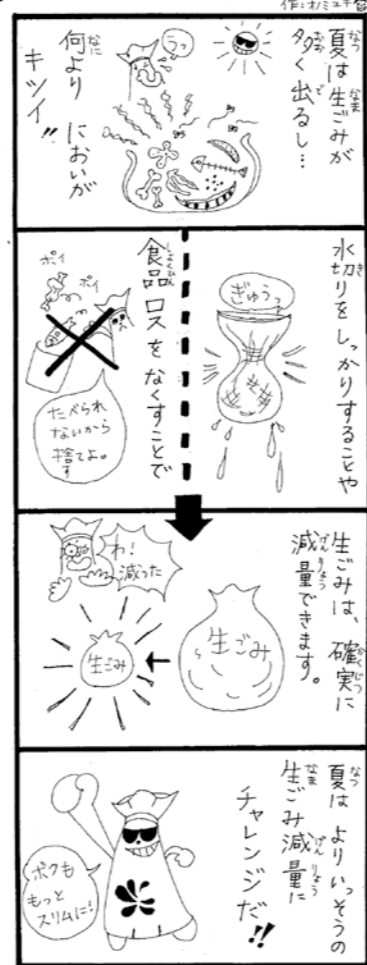 夏は生ごみが
多く出るし…
うっ
何より においが
キツイ!!
水切りをしっかりすることや
ぎゅうっ
食品ロスをなくすことで
ポイ
ポイ
たべられ
ないから
捨てよ。
生ごみは、確実に
減量できます。
わ!
減った
生ごみ
生ごみ
夏は よりいっそうの
生ごみ減量に
チャレンジだ!!
ボクも
もっと
スリムに!